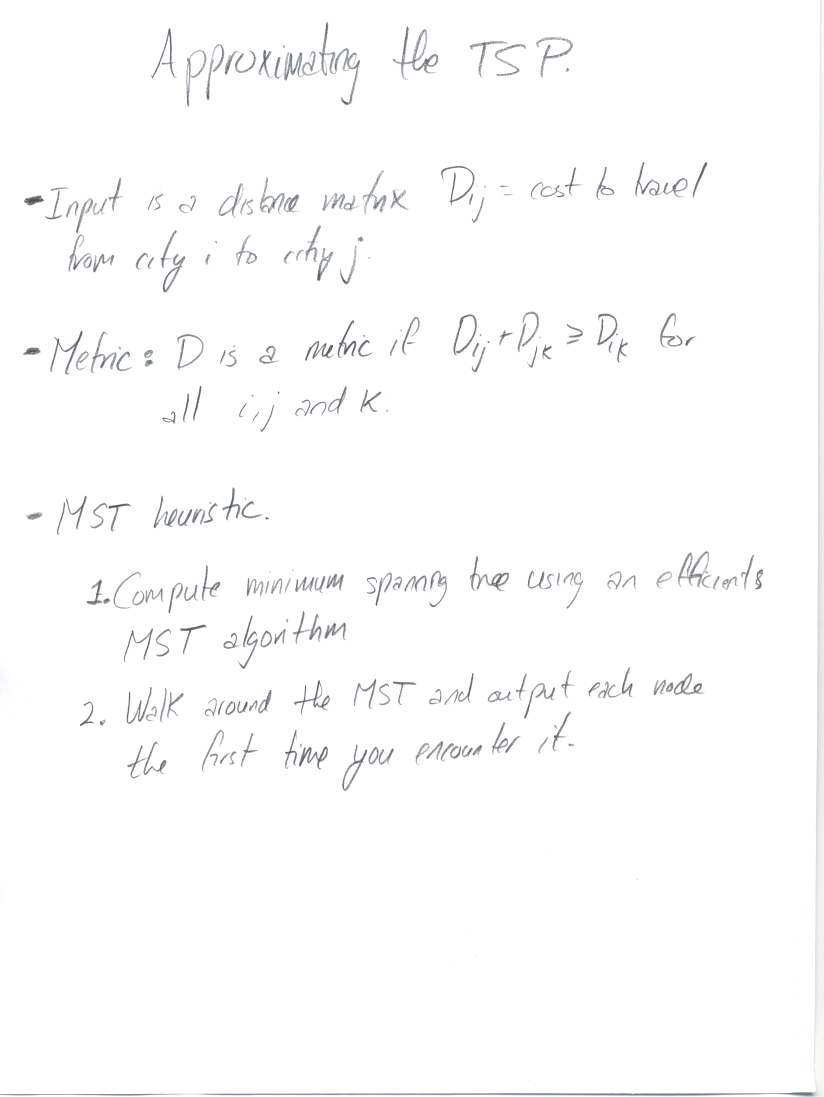 Approximating the TSP.
- Input is a distance matrix Dij = cost to travel
from city i to city j.
- Metric: D is a metric if Dij + Djk ≥ Dik for
all i,j and k.
- MST heuristic.
1. Compute minimum spanning tree using an efficients
MST algorithm
2. Walk around the MST and output each node
the first time you encounter it.